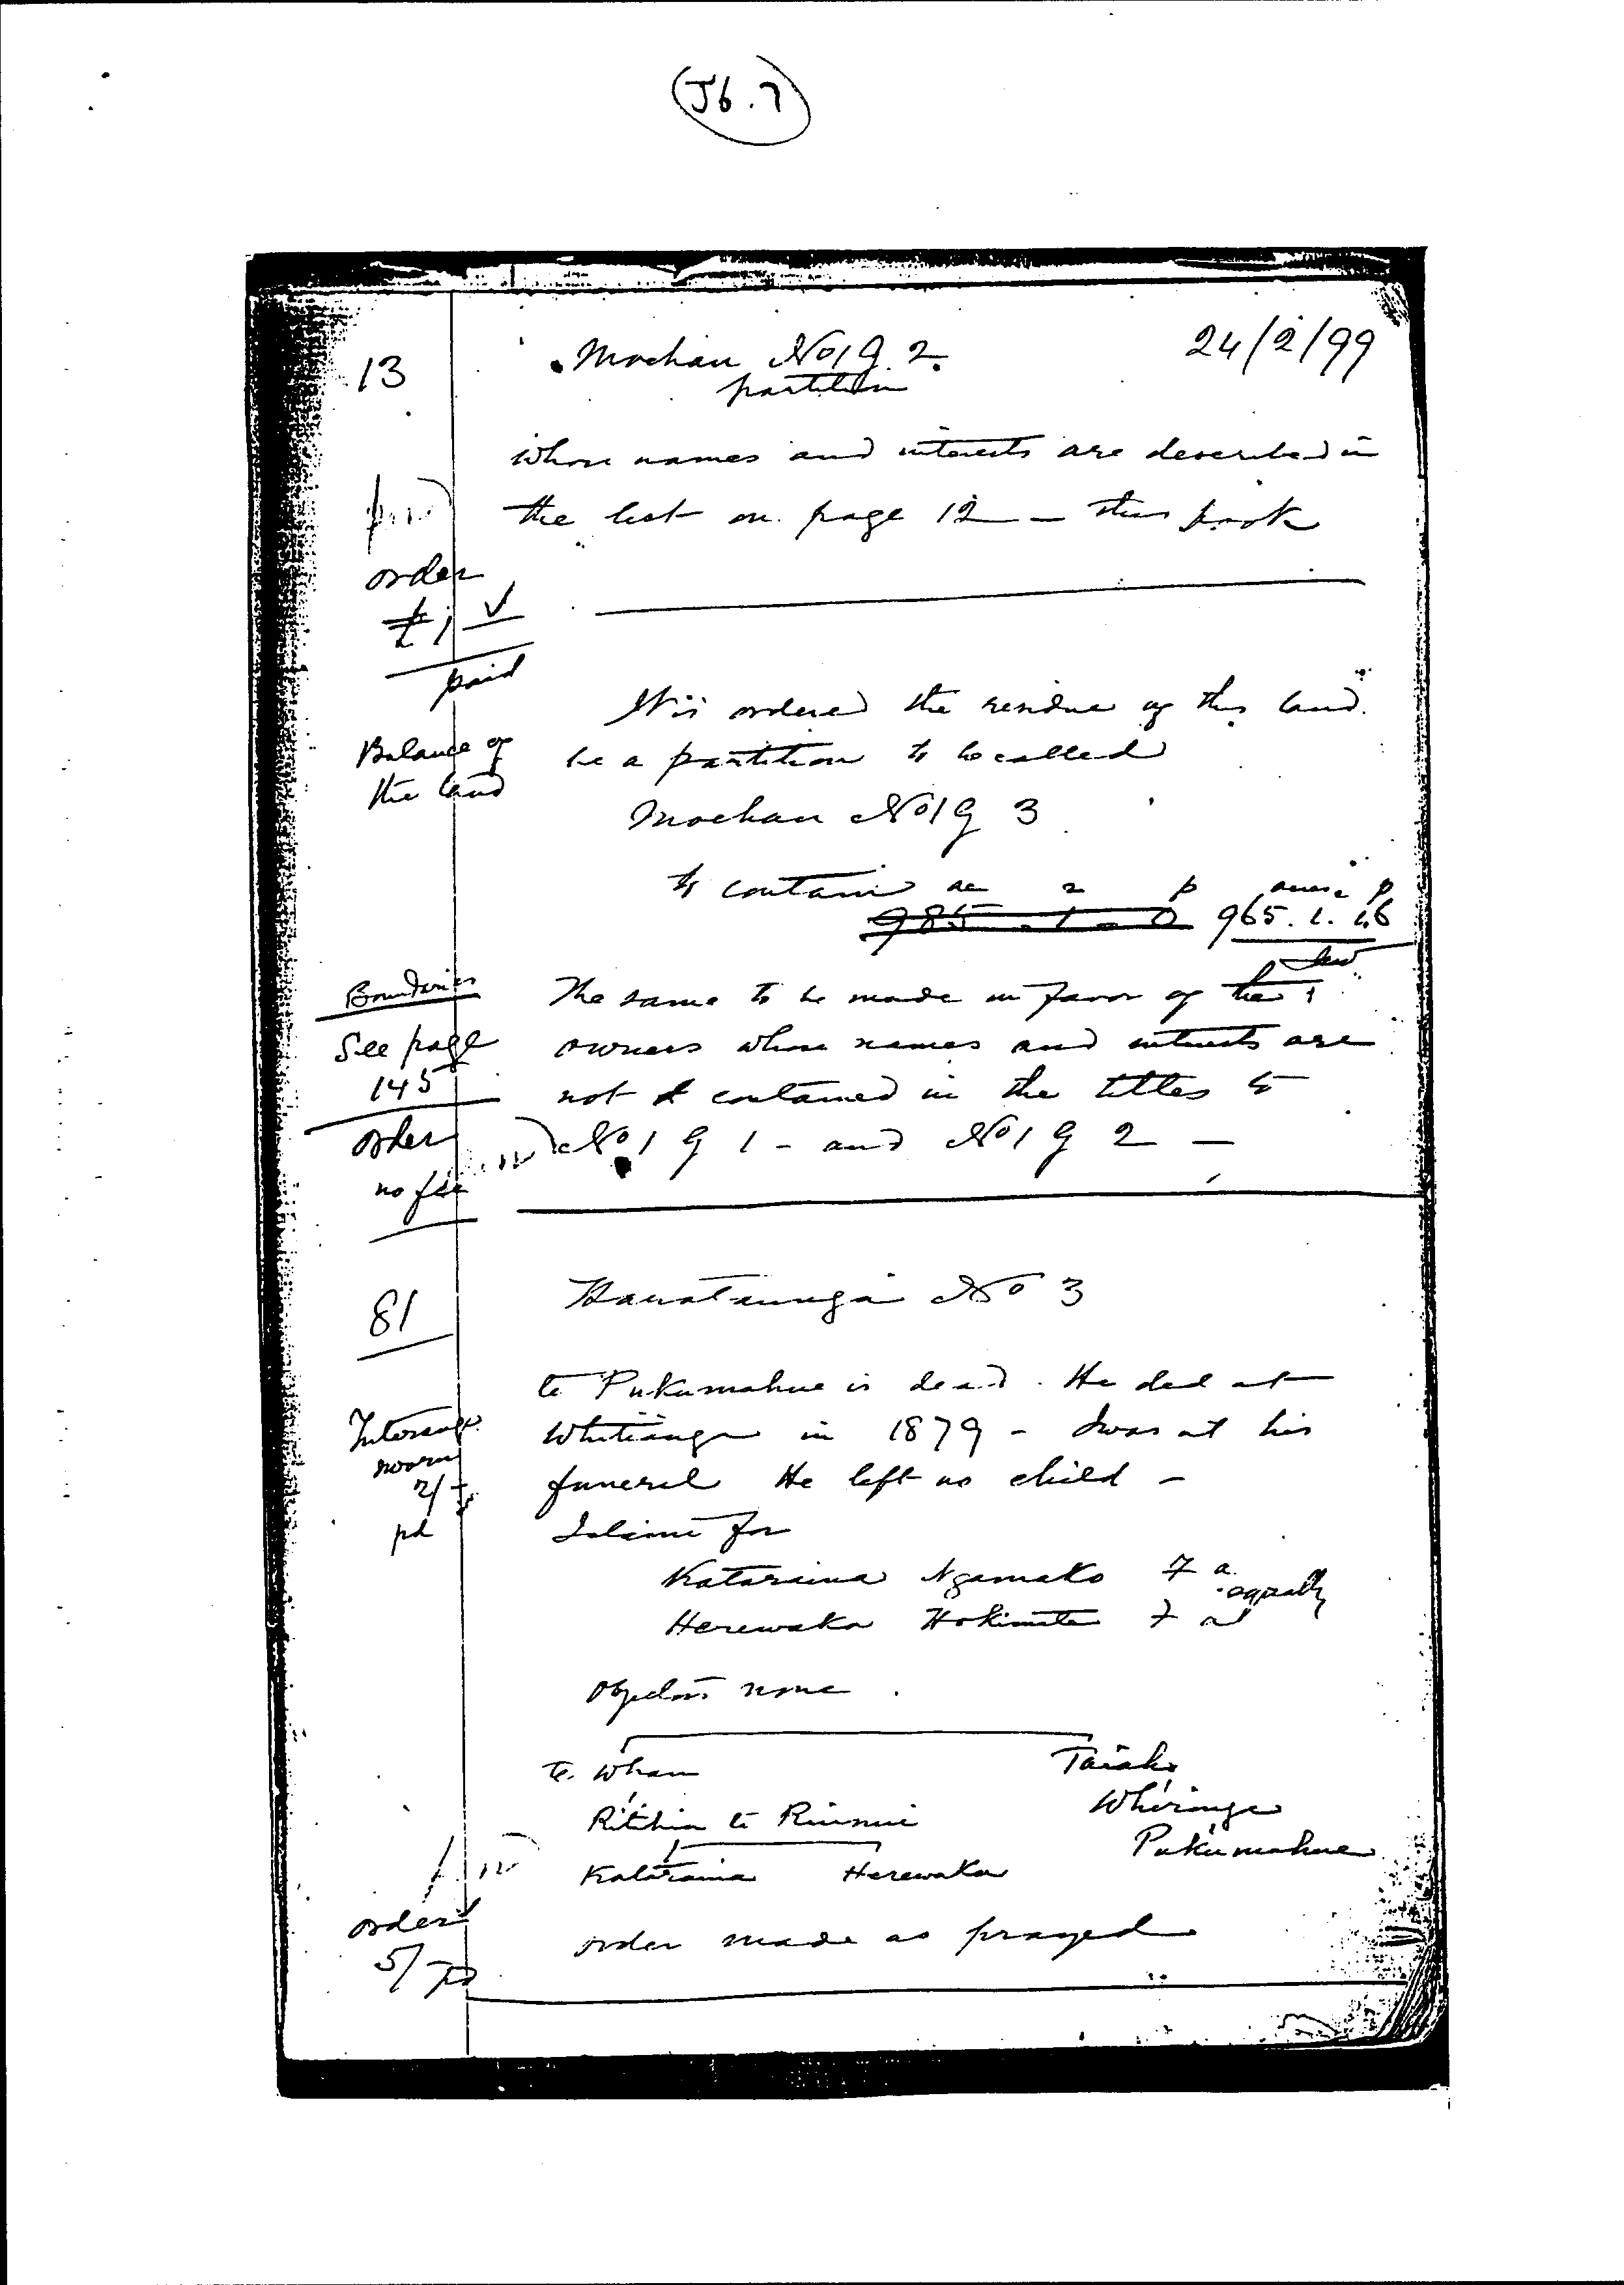 (J6.7)
13
Moehau No 1 G 2.
24/2/99
partition
whose names and interests are described in
the list on page 12 - this book
order
£1
paid
It is ordered the residue of this land
Balance of
the land
be a partition to be called
Moehau No 1 G 3
to contain ac r p acres r p
985 - 1 - 0 965. 1. 16
Boundaries
The same to be made in favor of the
See page
145
owners whose names and interests are
not contained in the titles to
order
No 1 G 1 - and No 1 G 2 -
no fee
81
Harataunga No 3
te Pukumahue is dead. He died at
Whitianga in 1879 - I was at his
funeral He left no child -
2/-
pd
I claim for
Kataraina Ngamako F a
equally
Herewaka Hokimate F ad
Objectors none.
Te Whau
Taiaho
Ritihia te Riunui
Whiringa
Pukumahue
Kataraina Herewaka
order
5/- pd
order made as prayed